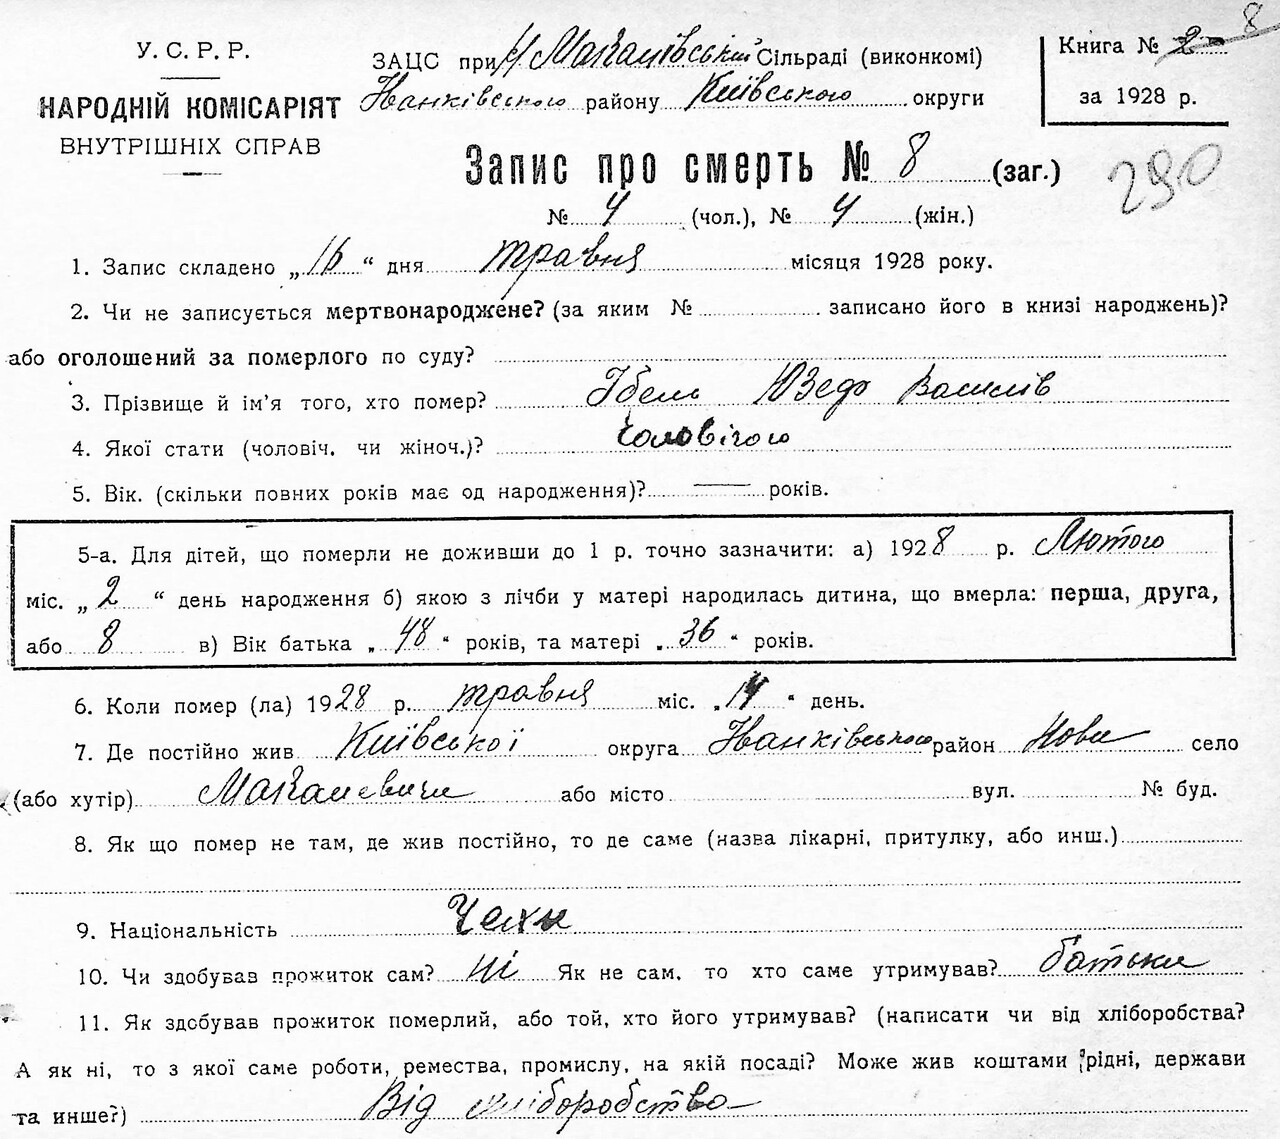 У. С. Р. Р.
НАРОДНІЙ КОМІСАРІЯТ
ВНУТРІШНІХ СПРАВ
ЗАЦС при Н Макалівській Сільраді (виконкомі)
Іванківського району Київського округи
Книга № 2 8
за 1928 р.
Запис про смерть № 8 (заг.)
290
№ 4 (чол.), № 4 (жін.)
1. Запис складено „16“ дня травня місяця 1928 року.
2. Чи не записується мертвонароджене? (за яким № записано його в книзі народжень)?
або оголошений за померлого по суду?
3. Прізвище й ім’я того, хто помер? Ібель Юзеф Василів
4. Якої стати (чоловіч. чи жіноч.)? чоловічого
5. Вік. (скільки повних років має од народження)? — років.
5-а. Для дітей, що померли не доживши до 1 р. точно зазначити: а) 1928 р. Лютого
міс. „2“ день народження б) якою з лічби у матері народилась дитина, що вмерла: перша, друга,
або 8 в) Вік батька „48“ років, та матері „36“ років.
6. Коли помер (ла) 1928 р. травня міс. „14“ день.
7. Де постійно жив Київської округа Іванківського район Нови село
(або хутір) Макалевичи або місто вул. № буд.
8. Як що помер не там, де жив постійно, то де саме (назва лікарні, притулку, або инш.)
9. Національність Чехи
10. Чи здобував прожиток сам? ні Як не сам, то хто саме утримував? батьки
11. Як здобував прожиток померлий, або той, хто його утримував? (написати чи від хліборобства?
А як ні, то з якої саме роботи, ремества, промислу, на якій посаді? Може жив коштами рідні, держави
та инше?) Від хліборобства